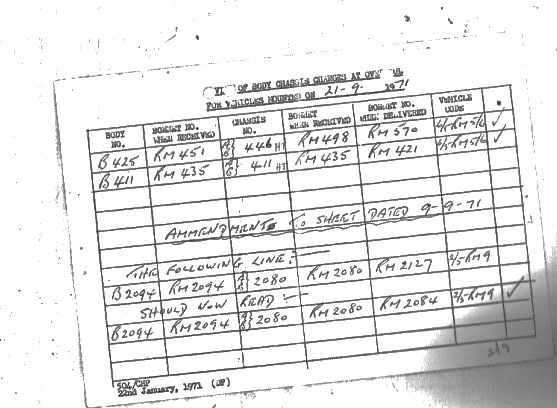 OF BODY CHASSIS CHANGES AT
FOR VEHICLES MOUNTED ON 21-9. 1971
BODY NO. BONNET NO. WHEN RECEIVED CHASSIS NO. BONNET WHEN RECEIVED BONNET NO. WHEN DELIVERED VEHICLE CODE
B425 RM451 A} B} 446 HT RM498 RM570 2/5-RM5/6 ✓
B411 RM435 A} B} 411 HT RM435 RM421 2/5-RM5/6 ✓
AMMENDMENTS TO SHEET DATED 9-9-71
THE FOLLOWING LINE:-
B2094 RM2094 A} B} 2080 RM2080 RM2127 2/5-RM9
SHOULD NOW READ:-
B2094 RM2094 A} B} 2080 RM2080 RM2084 2/5-RM9 ✓
504/CHP
22nd January, 1971 (OF)
21/9